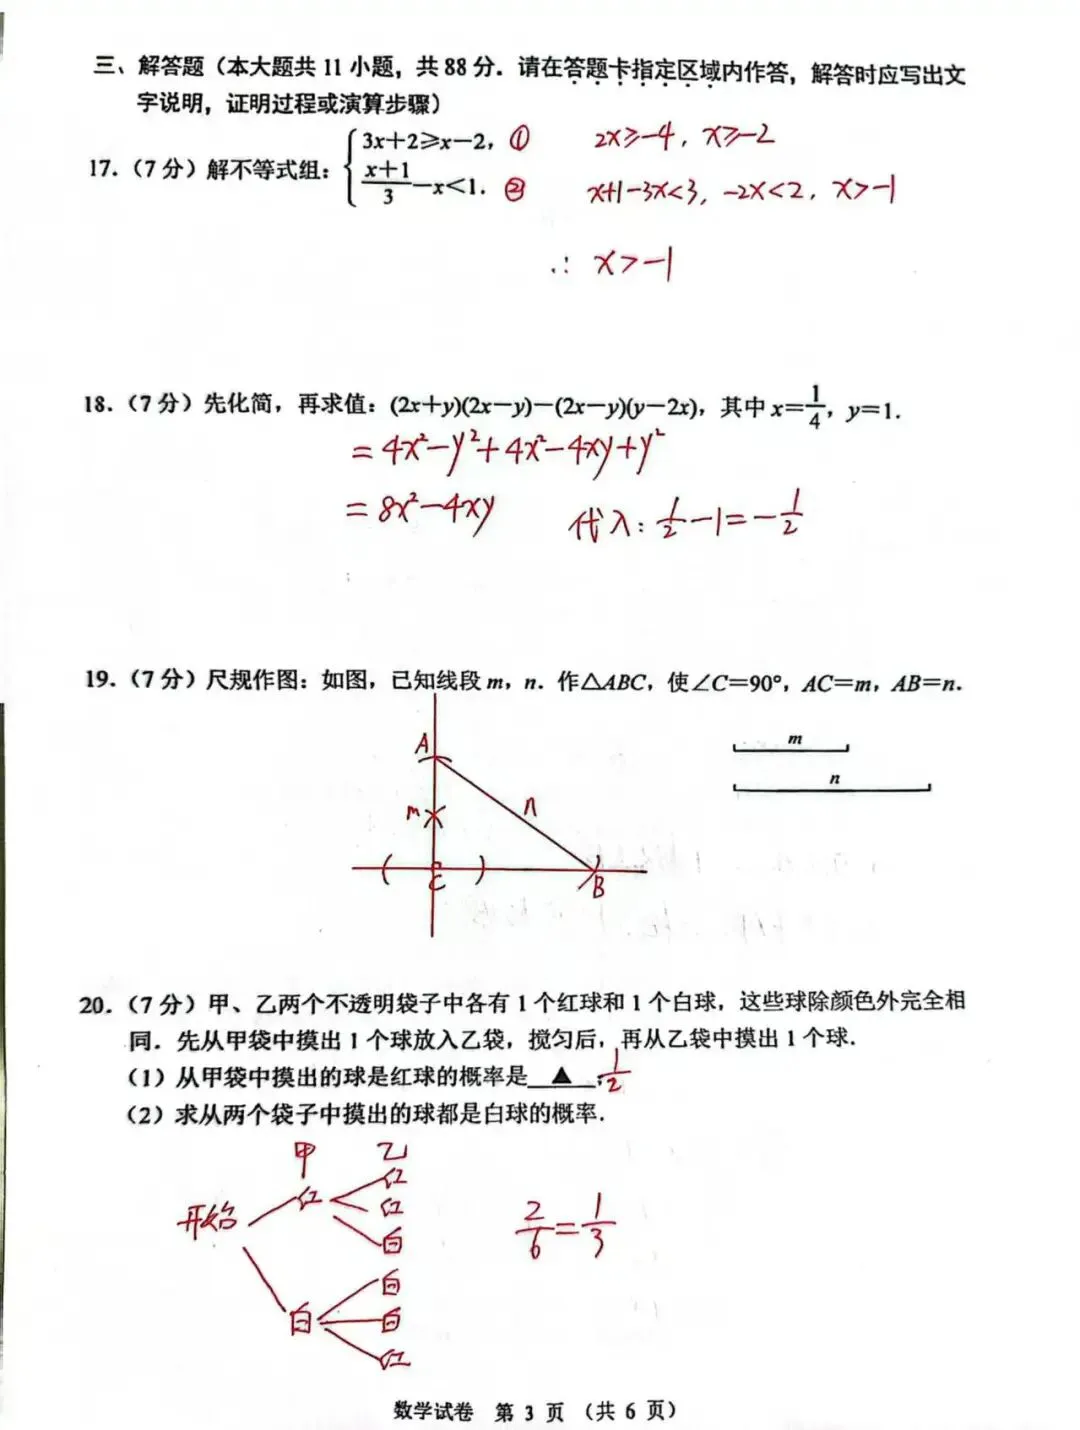 三、解答题（本大题共 11 小题，共 88 分．请在答题卡指定区域内作答，解答时应写出文
字说明，证明过程或演算步骤）
17．（7 分）解不等式组：{ 3x＋2≥x－2，① 2x≥-4, x≥-2
(x＋1)/3－x＜1．② x+1-3x<3, -2x<2, x>-1
∴ x>-1
18．（7 分）先化简，再求值：(2x＋y)(2x－y)－(2x－y)(y－2x)，其中 x＝1/4，y＝1．
= 4x²-y²+4x²-4xy+y²
= 8x²-4xy 代入: 1/2-1=-1/2
19．（7 分）尺规作图：如图，已知线段 m，n．作△ABC，使∠C＝90°，AC＝m，AB＝n．
m
n
A
n
m
C
B
20．（7 分）甲、乙两个不透明袋子中各有 1 个红球和 1 个白球，这些球除颜色外完全相
同．先从甲袋中摸出 1 个球放入乙袋，搅匀后，再从乙袋中摸出 1 个球．
（1）从甲袋中摸出的球是红球的概率是 ▲ ；1/2
（2）求从两个袋子中摸出的球都是白球的概率．
甲 乙
红
开始 红 红
白
2/6=1/3
白
白 白
红
数学试卷 第 3 页 （共 6 页）